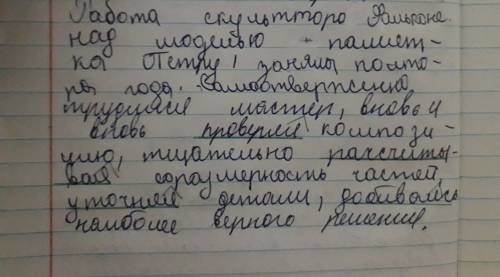 Работа скульпторо Фальконе
над моделью памят-
ка Петру I заняла полто-
ра года. Самоотверженно
трудился мастер, вновь и
вновь проверяя компози-
цию, тщательно расчиты-
вая соразмерность частей,
уточняя детали, добиваясь
наиболее верного решения.